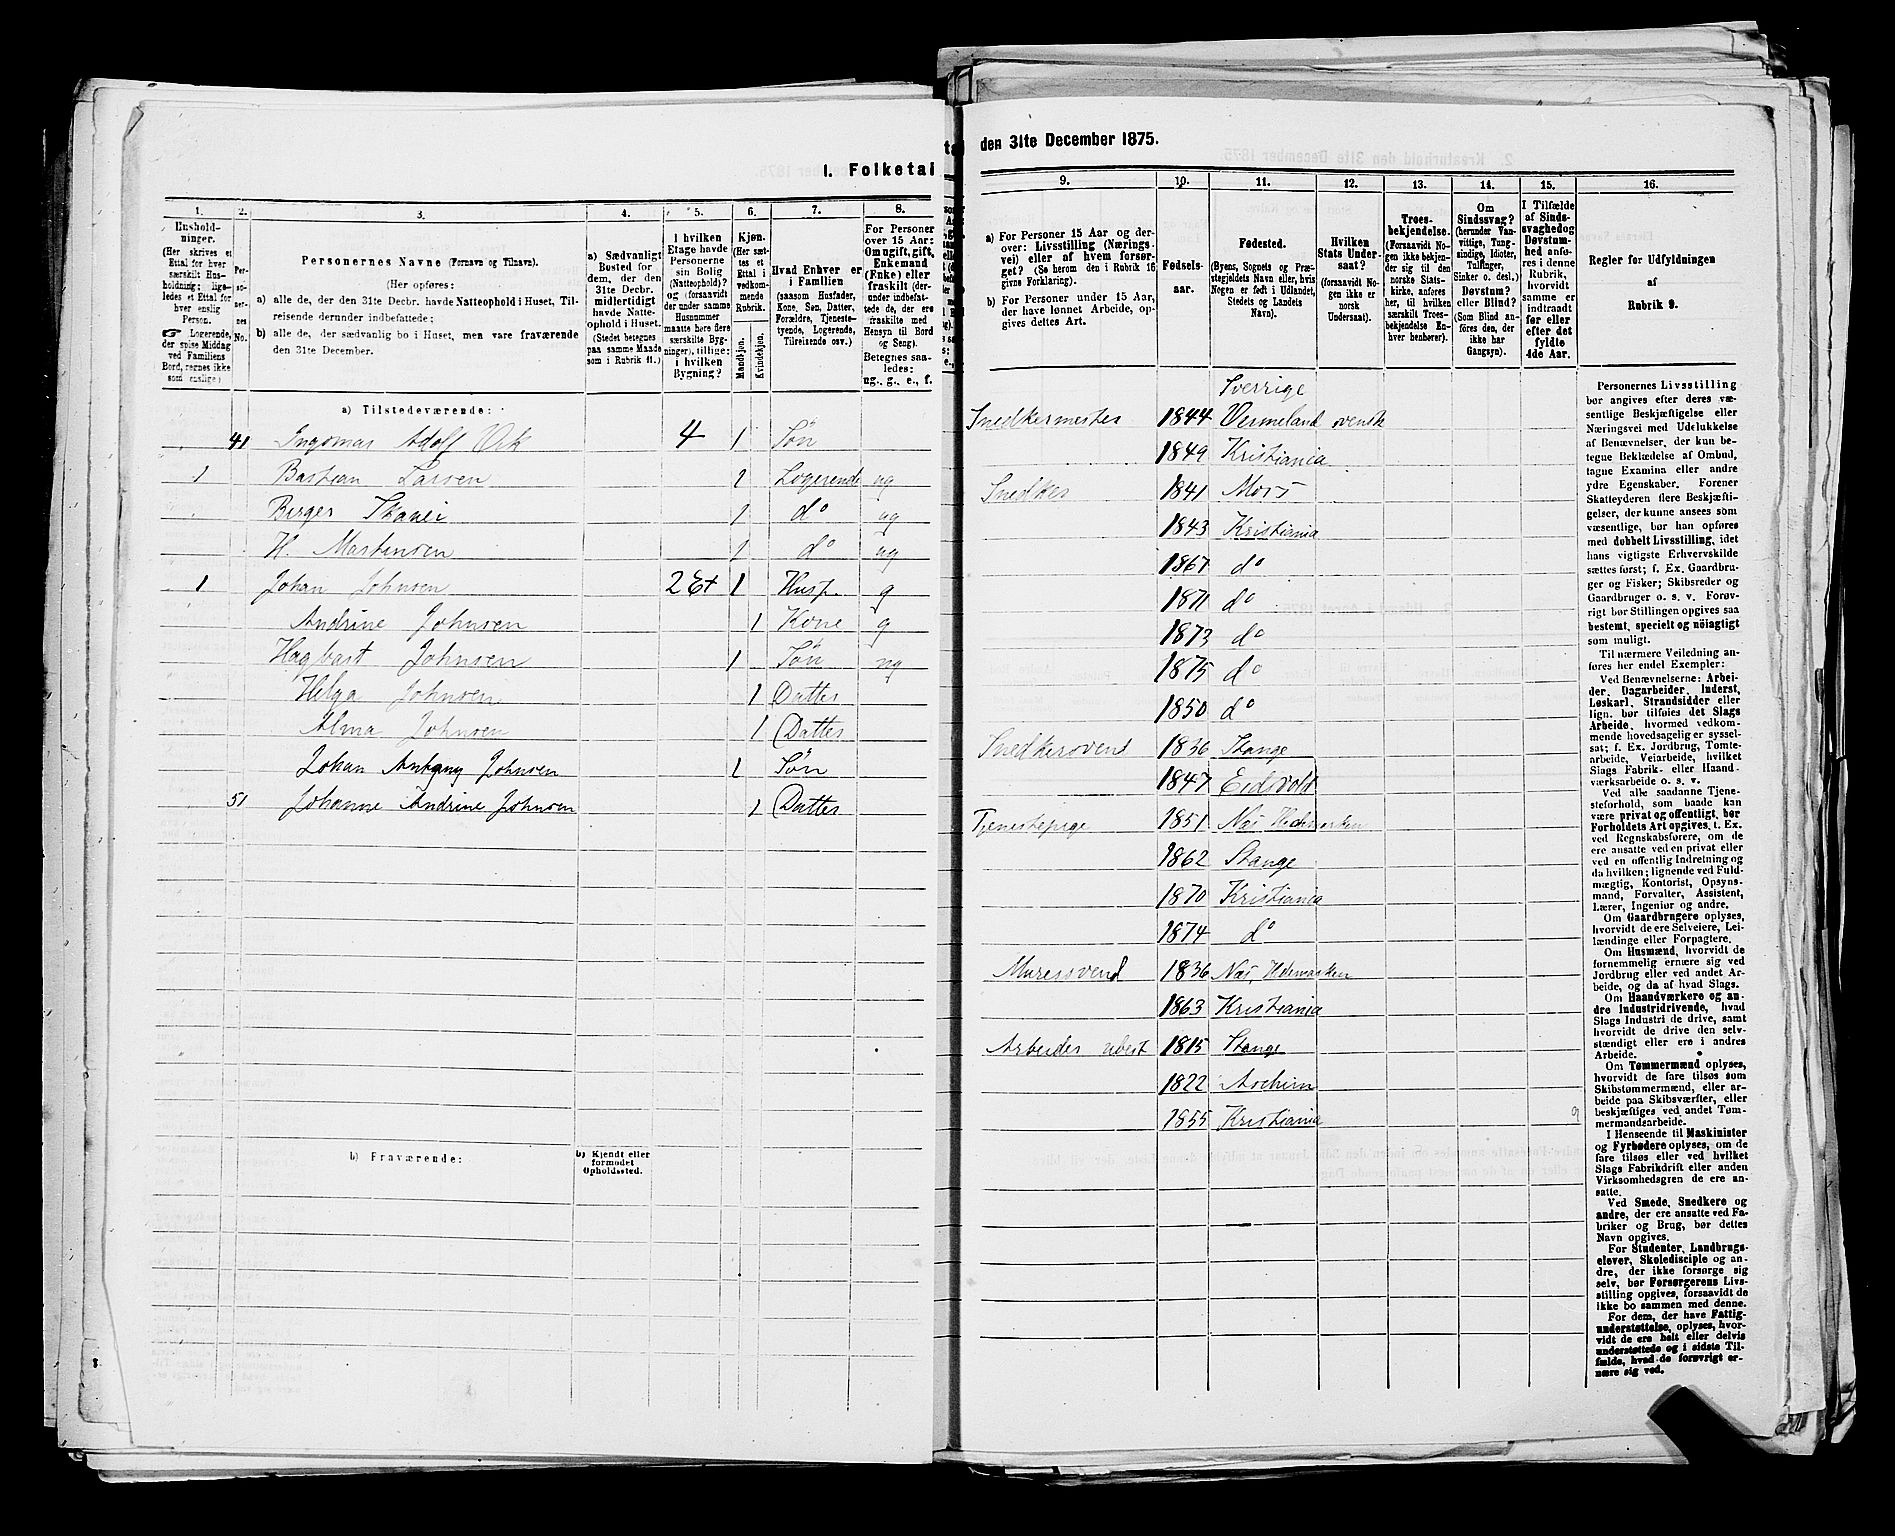 I. Folketal
1. 2. 3. 4. 5. 6. 7. 8.
Husholdninger.
(Her skrives et Ettal for hver særskilt Husholdning; ligeledes et Ettal for hver enslig Person.
☞ Logerende, der spise Middag ved Familiens Bord, regnes ikke som enslige.)
Personernes No.
Personernes Navne (Fornavn og Tilnavn).
(Her opføres:
a) alle de, der den 31te Decbr. havde Natteophold i Huset, Tilreisende derunder indbefattede;
b) alle de, der sædvanlig bo i Huset, men vare fraværende den 31te December.
a) Sædvanligt Bosted for dem, der den 31te Decbr. midlertidigt havde Natteophold i Huset. (Stedet betegnes paa samme Maade som i Rubrik 11.)
I hvilken Etage havde Personerne sin Bolig (Natteophold)? og (forsaavidt der under samme Husnummer maatte høre flere særskilte Bygninger), tillige: i hvilken Bygning?
Kjøn. (Her sættes et Ettal i vedkommende Rubrik.
Mandkjøn. Kvindekjøn.
Hvad Enhver er i Familien
(saasom Husfader, Kone, Søn, Datter, Forældre, Tjenestetyende, Logerende, Tilreisende osv.)
For Personer over 15 Aar: Om ugift, gift, Enkemand (Enke) eller fraskilt (derunder indbefattede de, der ere fraskilte med Hensyn til Bord og Seng).
Betegnes saaledes: ug., g., e., f.
a) Tilstedeværende:
41 Ingomar Adolf Ek 4 1 Søn
1 Bastian Larsen 1 Logerende ug
Birger 1 do ug
H. Martinsen 1 do ug
1 Johan Johnsen 2 Et 1 Husf. g
Andrine Johnsen 1 Kone g
Hagbart Johnsen 1 Søn ug
Helga Johnsen 1 Datter
Alma Johnsen 1 Datter
Johan Johnsen 1 Søn
51 Johanne Andrine Johnsen 1 Datter
b) Fraværende:
b) Kjendt eller formodet Opholdssted.
den 31te December 1875.
9. 10. 11. 12. 13. 14. 15. 16.
a) For Personer 15 Aar og derover: Livsstilling (Næringsvei) eller af hvem forsørget? (Se herom den i Rubrik 16 givne Forklaring).
b) For Personer under 15 Aar, der have lønnet Arbeide, opgives dettes Art.
Fødselsaar.
Fødested.
(Byens, Sognets og Præstegjeldets Navn eller, hvis Nogen er født i Udlandet, Stedets og Landets Navn).
Hvilken Stats Undersaat?
(forsaavidt Nogen ikke er norsk Undersaat).
Troesbekjendelse.
(Forsaavidt Nogen ikke bekjender sig til den norske Statskirke, anføres her, til hvilken særskilt Troesbekjendelse Enhver henhører).
Om Sindssvag?
(herunder Vanvittige, Tungsindige, Idioter, Tullinger, Sinker o. desl.)
Døvstum? eller Blind?
(Som Blind anføres den, der ikke har Gangsyn).
I Tilfælde af Sindssvaghed og Døvstumhed anføres i denne Rubrik, hvorvidt samme er indtraadt før eller efter det fyldte 4de Aar.
Regler for Udfyldningen
af
Rubrik 9.
Sverrige
Snedkermester 1844 Vermeland svensk
1849 Kristiania
Snedker 1841 Moss
1843 Kristiania
1867 do
1871 do
1873 do
1875 do
1850 do
Snedkersvend 1836 Stange
1847 Eidsvold
Tjenestepige 1851 Næs Hedemarken
1862 Stange
1870 Kristiania
1874 do
Murersvend 1836 Næs, Hdemarken
1863 Kristiania
Arbeider ubest 1815 Stange
1822 Aschim
1855 Kristiania
Personernes Livsstilling bør angives efter deres væsentlige Beskjæftigelse eller Næringsvei med Udelukkelse af Benævnelser, der kun betegne Beklædelse af Ombud, tagne Examina eller andre ydre Egenskaber. Forener Skatteyderen flere Beskjæftigelser, der kunne ansees som væsentlige, bør han opføres med dobbelt Livsstilling, idet hans vigtigste Erhvervskilde sættes først; f. Ex. Gaardbruger og Fisker; Skibsreder og Gaardbruger o. s. v. Forøvrigt bør Stillingen opgives saa bestemt, specielt og nøiagtigt som muligt.
Til nærmere Veiledning anføres her endel Exempler:
Ved Benævnelserne: Arbeider, Dagarbeider, Inderst, Løskarl, Strandsidder eller lign. bør tilføies det Slags Arbeide, hvormed vedkommende hovedsagelig er sysselsat; f. Ex. Jordbrug, Tomtearbeide, Veiarbeide, hvilket Slags Fabrik- eller Haandværksarbeide o. s. v.
Ved alle saadanne Tjenesteforhold, som baade kan være privat og offentligt, bør Forholdets Art opgives, t. Ex. ved Regnskabsførere, om de ere ansatte ved en privat eller ved en offentlig Indretning og da hvilken; lignende ved Fuldmægtig, Kontorist, Opsynsmand, Forvalter, Assistent, Lærer, Ingeniør og andre.
Om Gaardbrugere oplyses, hvorvidt de ere Selveiere, Leilændinge eller Forpagtere.
Om Husmænd, hvorvidt de fornemmelig ernære sig ved Jordbrug eller ved andet Arbeide, og da af hvad Slags.
Om Haandværkere og andre Industridrivende, hvad Slags Industri de drive, samt hvorvidt de drive den selvstændigt eller ere i andres Arbeide.
Om Tømmermænd oplyses, hvorvidt de fare tilsøs som Skibstømmermænd, eller arbeide paa Skibsværfter, eller beskjæftiges ved andet Tømmermandsarbeide.
I Henseende til Maskinister og Fyrbødere oplyses, om de fare tilsøs eller ved hvilket Slags Fabrikdrift eller anden Virksomhedsgren de ere ansatte.
Ved Smede, Snedkere og andre, der ere ansatte ved Fabriker og Brug, bør dettes Navn opgives.
For Studenter, Landbrugselever, Skoledisciple og andre, der ikke forsørge sig selv, bør Forsørgerens Livsstilling opgives, forsaavidt de ikke bo sammen med denne.
For dem, der have Fattigunderstøttelse, oplyses, hvorvidt de ere helt eller delvis understøttede og i sidste Tilfælde, hvad de forøvrigt ernære sig ved.